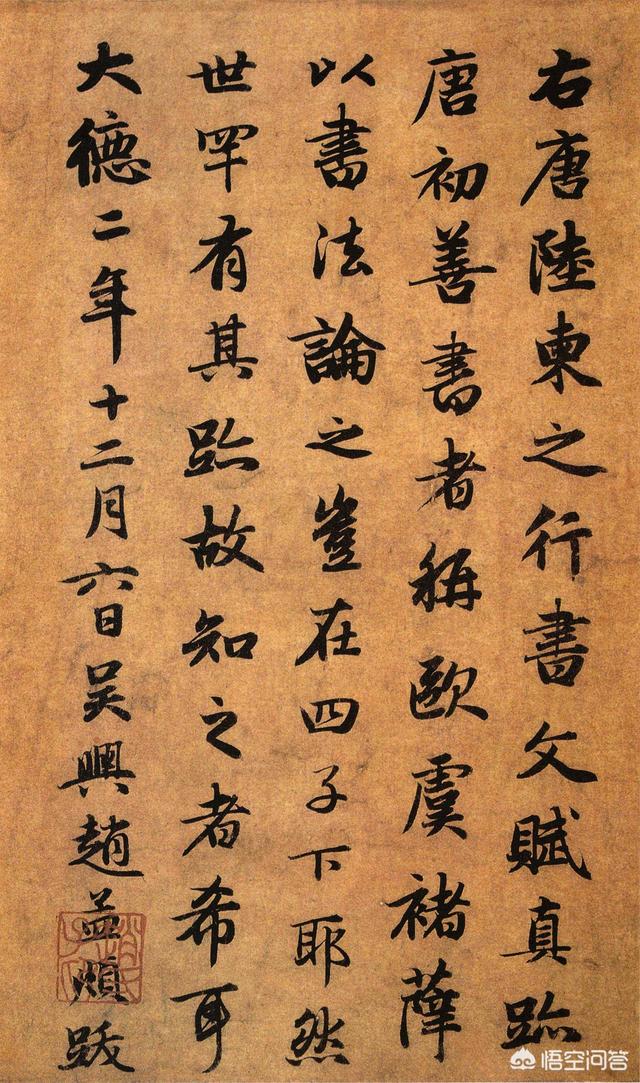 右唐陸柬之行書文賦真跡
唐初善書者稱歐虞褚薛
以書法論之豈在四子下耶然
世罕有其跡故知之者希耳
大德二年十二月六日吳興趙孟頫跋
悟空问答